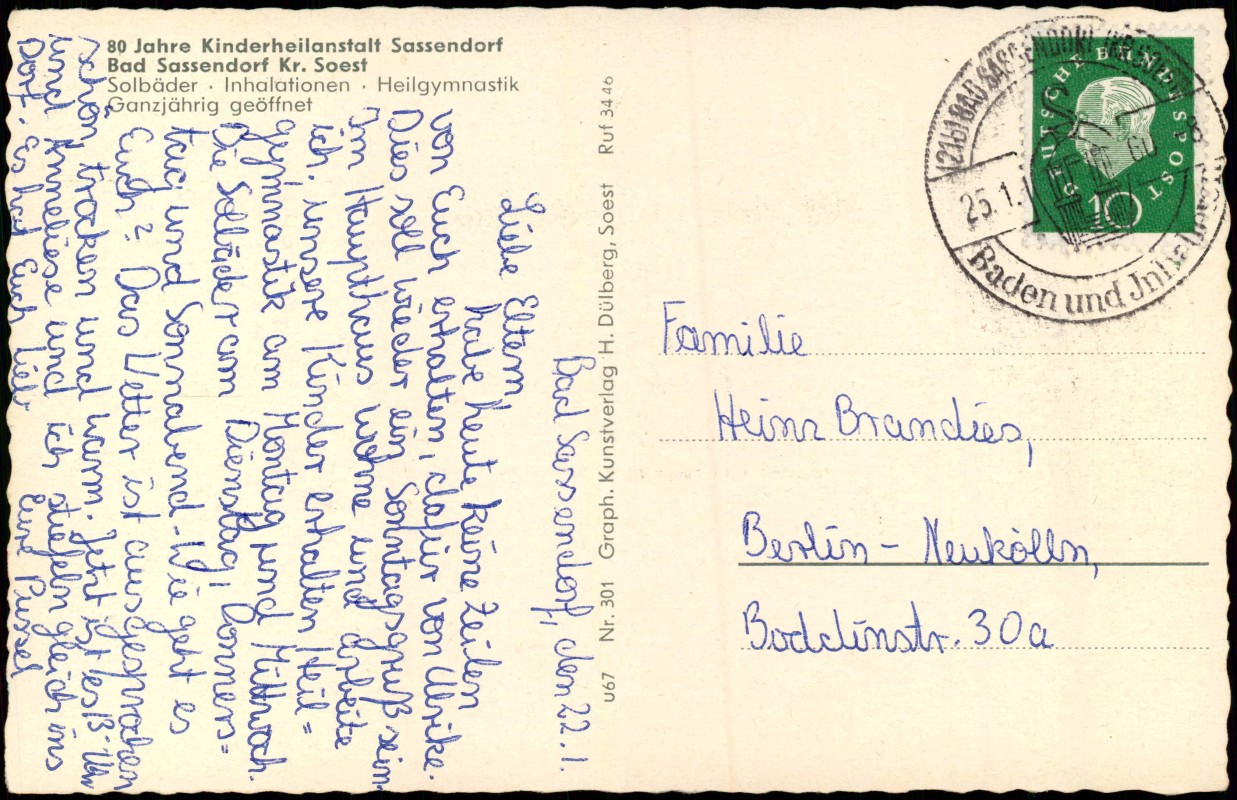 80 Jahre Kinderheilanstalt Sassendorf
Bad Sassendorf Kr. Soest
Solbäder · Inhalationen · Heilgymnastik
Ganzjährig geöffnet
Bad Sassendorf, den 22.1.
Liebe Eltern,
habe heute keine Zeilen
von Euch erhalten, dafür von Ulrike.
Dies soll wieder ein Sonntagsgruß sein.
Im Haupthaus wohne und arbeite
ich, unsere Kinder erhalten Heil=
gymnastik am Montag und Mittwoch.
Die Solbäder am Dienstag, Donners=
tag und Sonnabend. Wie geht es
Euch? Das Wetter ist ausgesprochen
schön, trocken und warm. Jetzt ist es 13 Uhr
und Anneliese und ich stiefeln gleich ins
Dorf. Es hat Euch lieb
Eure Pussel
u67 Nr. 301 Graph. Kunstverlag H. Dülberg, Soest Ruf 3446
(21b) BAD SASSENDORF
25.1.
Baden und
DEUTSCHE BUNDESPOST
10
Familie
Heinz Brandies,
Berlin - Neukölln,
Boddinstr. 30a